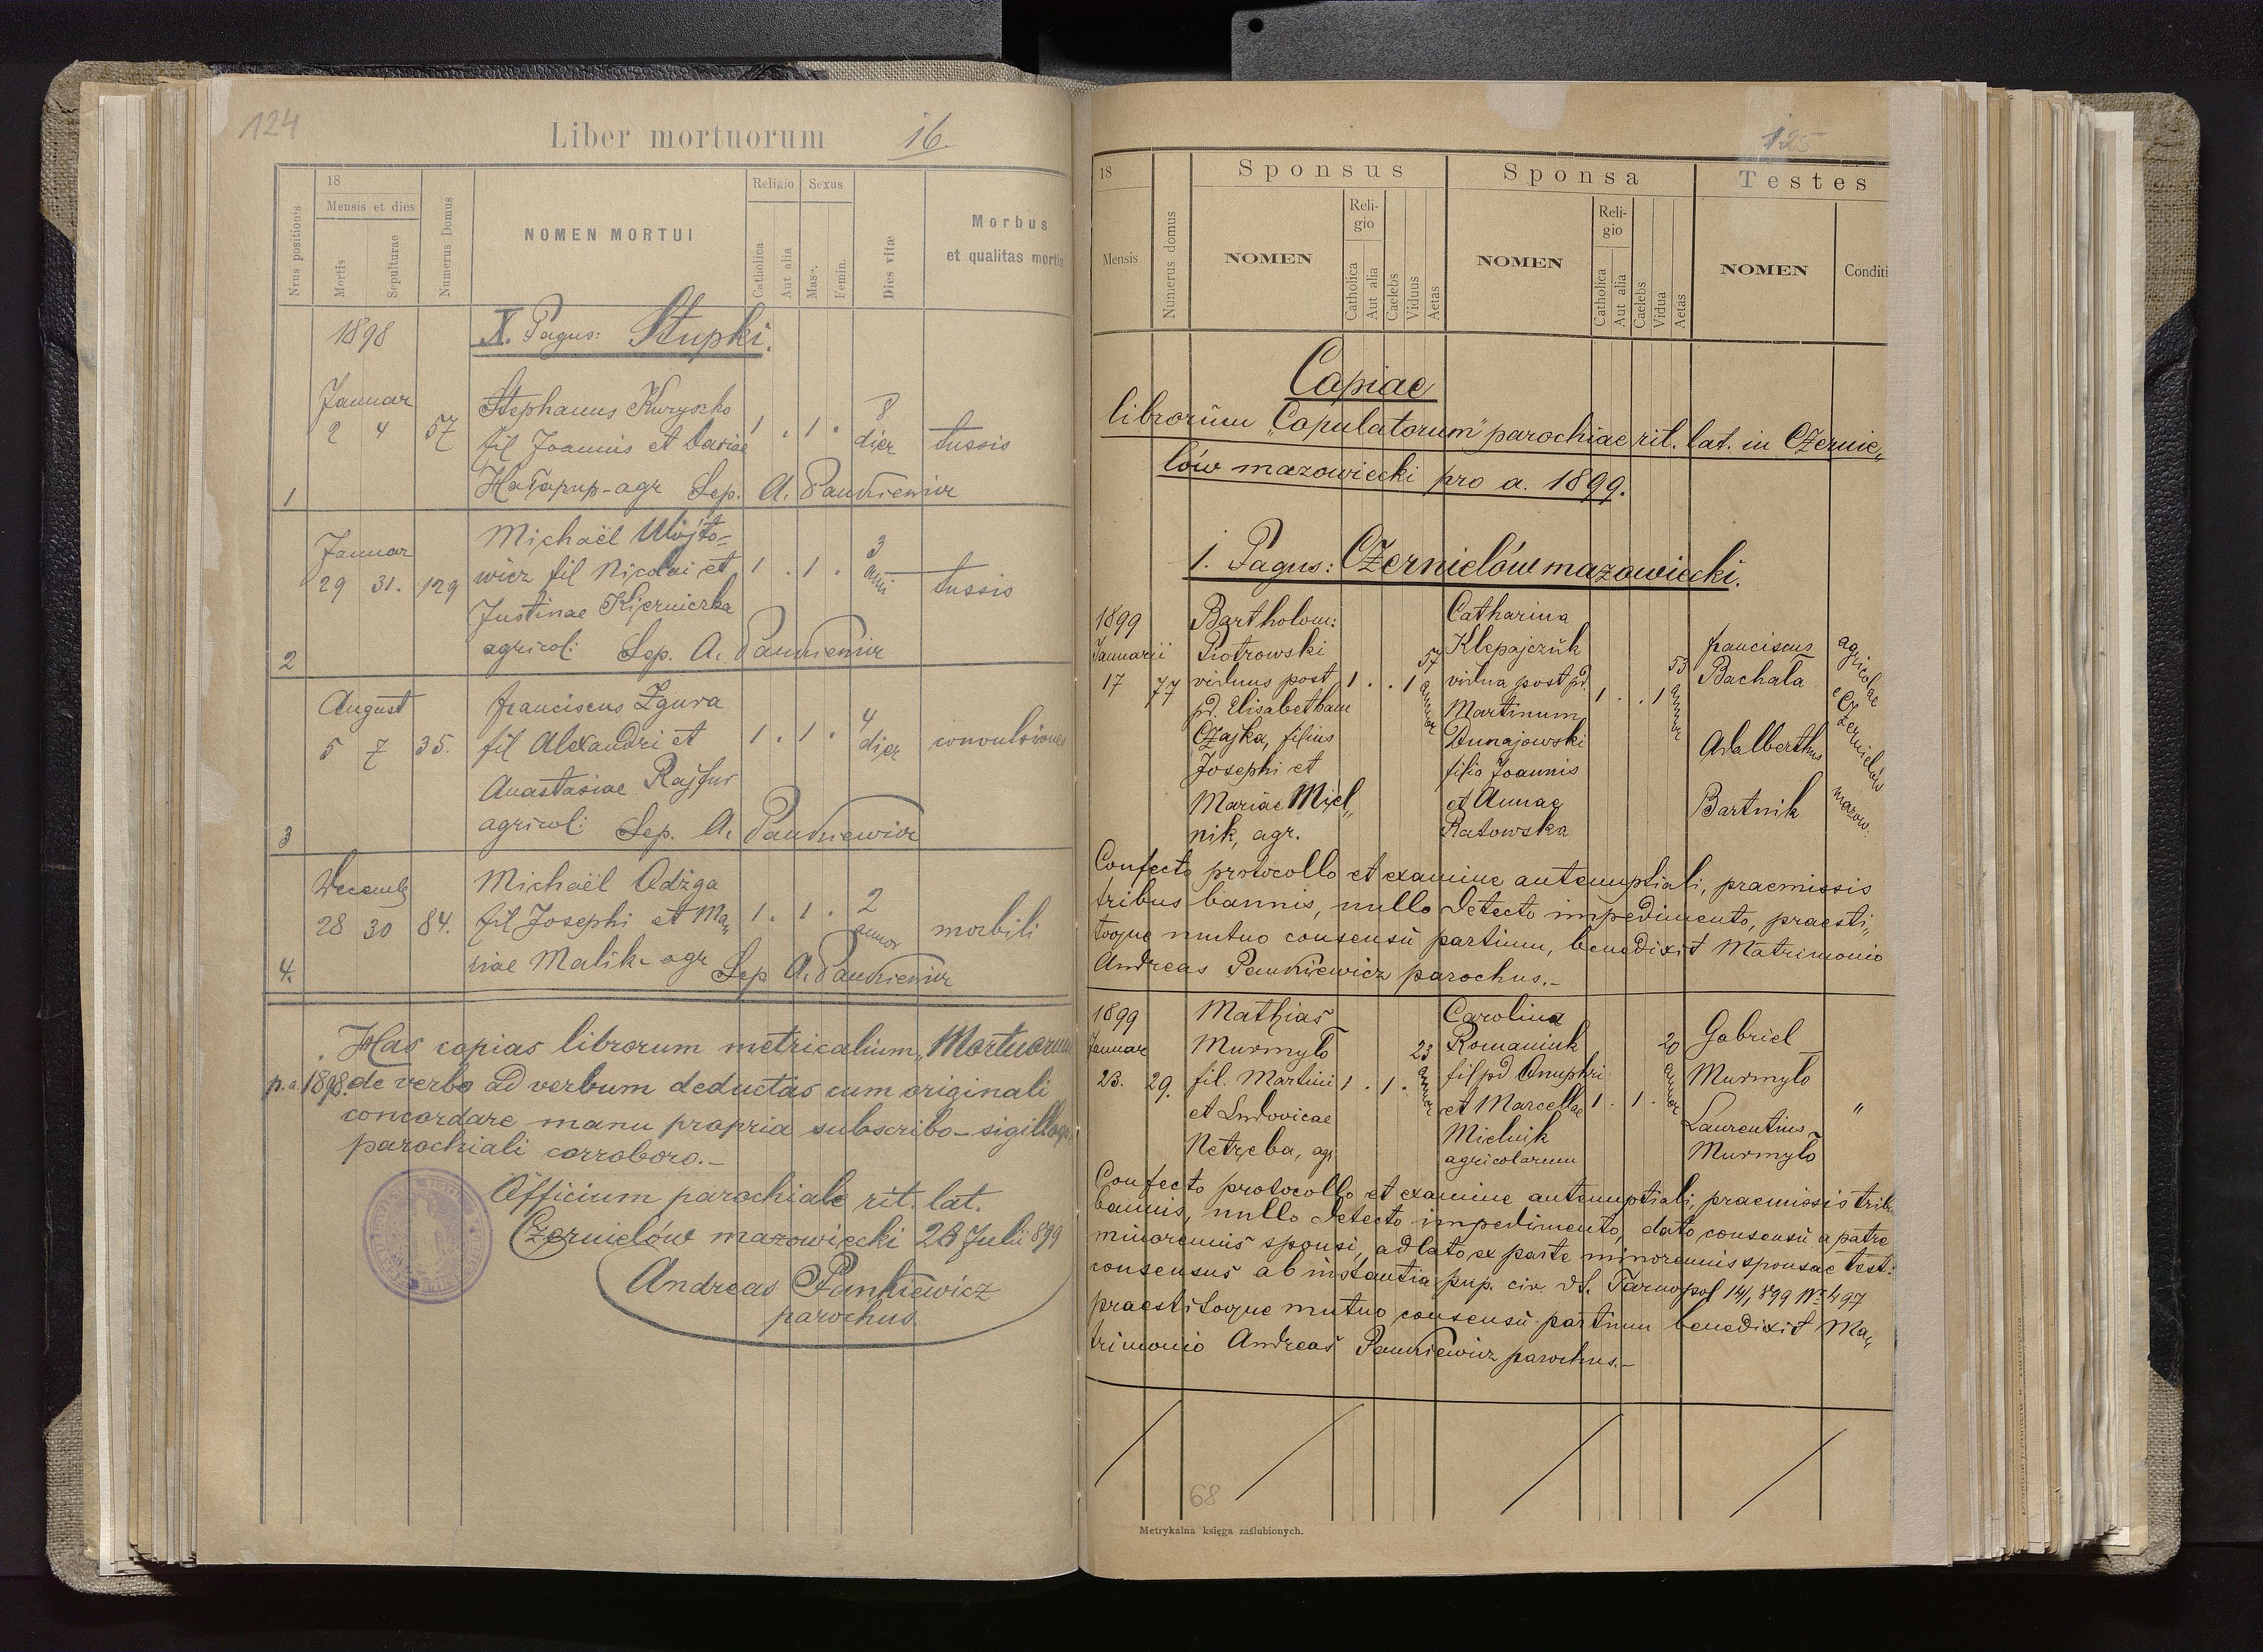 124
Liber mortuorum 16.
Nrus positionis
18
Mensis et dies
Mortis
Sepulturae
Numerus Domus
NOMEN MORTUI
Religio
Catholica
Aut alia
Sexus
Masc.
Femin.
Dies vitæ
Morbus
et qualitas mortis
1898
X. Pagus: Stupki.
Januar
2 4 57
Stephanus
fil Joannis et Dariae
1 . 1 .
8
dier
tussis
agr Sep. A. Pankiewicz
1
Januar
29 31. 129
Michaël Wójto=
wicz fil Nicolai et
1 . 1 .
3
anni
tussis
Justinae Kierniczka
agricol: Sep. A. Pankiewicz
2
August
5 7 35.
Franciscus Zgura
fil Alexandri et
1 . 1 .
4
dier
convulsiones
Anastasiae Rajfur
agricol: Sep. A. Pankiewicz
3
Decemb
28 30 84.
Michaël Odżga
fil Josephi et Ma„
1 . 1 .
2
annor
morbili
riae Malik - agr Sep A. Pankiewicz
4.
Has copias librorum metricalium „Mortuorum
p. a 1898. de verbo ad verbum deductas cum originali
concordare manu propria subscribo - sigilloque
parochiali corroboro.-
Officium parochiale rit. lat.
Czernielów mazowiecki 28 Julii 899
Andreas Pankiewicz
parochus.
125
18
Mensis
Numerus domus
Sponsus
NOMEN
Reli-
gio
Catholica
Aut alia
Caelebs
Viduus
Aetas
Sponsa
NOMEN
Reli-
gio
Catholica
Aut alia
Caelebs
Vidua
Aetas
Testes
NOMEN
Conditi
Copiae
librorum „Copulatorum" parochiae rit. lat. in Czernie„
lów mazowiecki pro a. 1899.
1. Pagus: Czernielów mazowiecki.
1899
Januarii
17 77
Bartholom:
Piotrowski
viduus post
pd. Elisabetham
Czajka, filius
Josephi et
Mariae Miel„
nik, agr.
1 . . 1
57
annor
Catharina
Klepajczuk
vidua post pd.
Martinum
Dunajowski
filia Joannis
et Annae
Ratowska
1 . . 1
53
annor
Franciscus
Bachala
Adalberthus
Bartnik
agricolae
e Czernielów
mazow:
Confecto protocollo et examine antenuptiali, praemissis
tribus bannis, nullo detecto impedimento, praesti„
toque mutuo consensu partium, benedixit Matrimonio
Andreas Pankiewicz parochus.-
1899
Januar
23. 29.
Mathias
Murmyło
fil. Martini
et Ludovicae
Netreba, agr
1 . 1 .
23
annor
Carolina
Romaniuk
fil pd Onuphri
et Marcellae
Mielnik
agricolarum
1 . 1 .
20
annor
Gabriel
Murmyło
Laurentius
Murmyło
"
Confecto protocollo et examine antenuptiali, praemissis tribu
bannis, nullo detecto impedimento, dato consensu a patre
minorennis sponsi, adlato ex parte minorennis sponsae test:
consensus ab instantia pup. civ. dt. Tarnopol 14/1 899 Nr 497
praestitoque mutuo consensu partium benedixit Ma„
trimonio Andreas Pankiewicz parochus.-
68
Metrykalna księga zaślubionych.